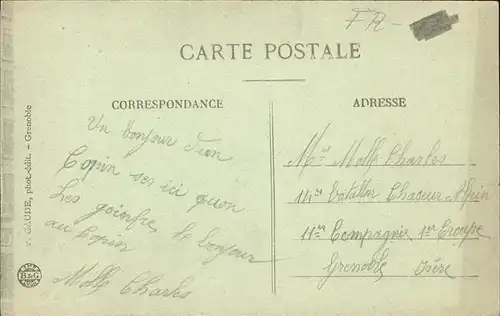 FR-
CARTE POSTALE
CORRESPONDANCE
Un bonjour d'un
Copin ses ici quon
Les goinfre le bonjour
au Copin
Moll Charles
ADRESSE
Mr Moll Charles
14me Batillon Chaceur Alpin
11me Compagnie 1er Troupe
Grenoble Isère
phot.-édit. - Grenoble
B&G